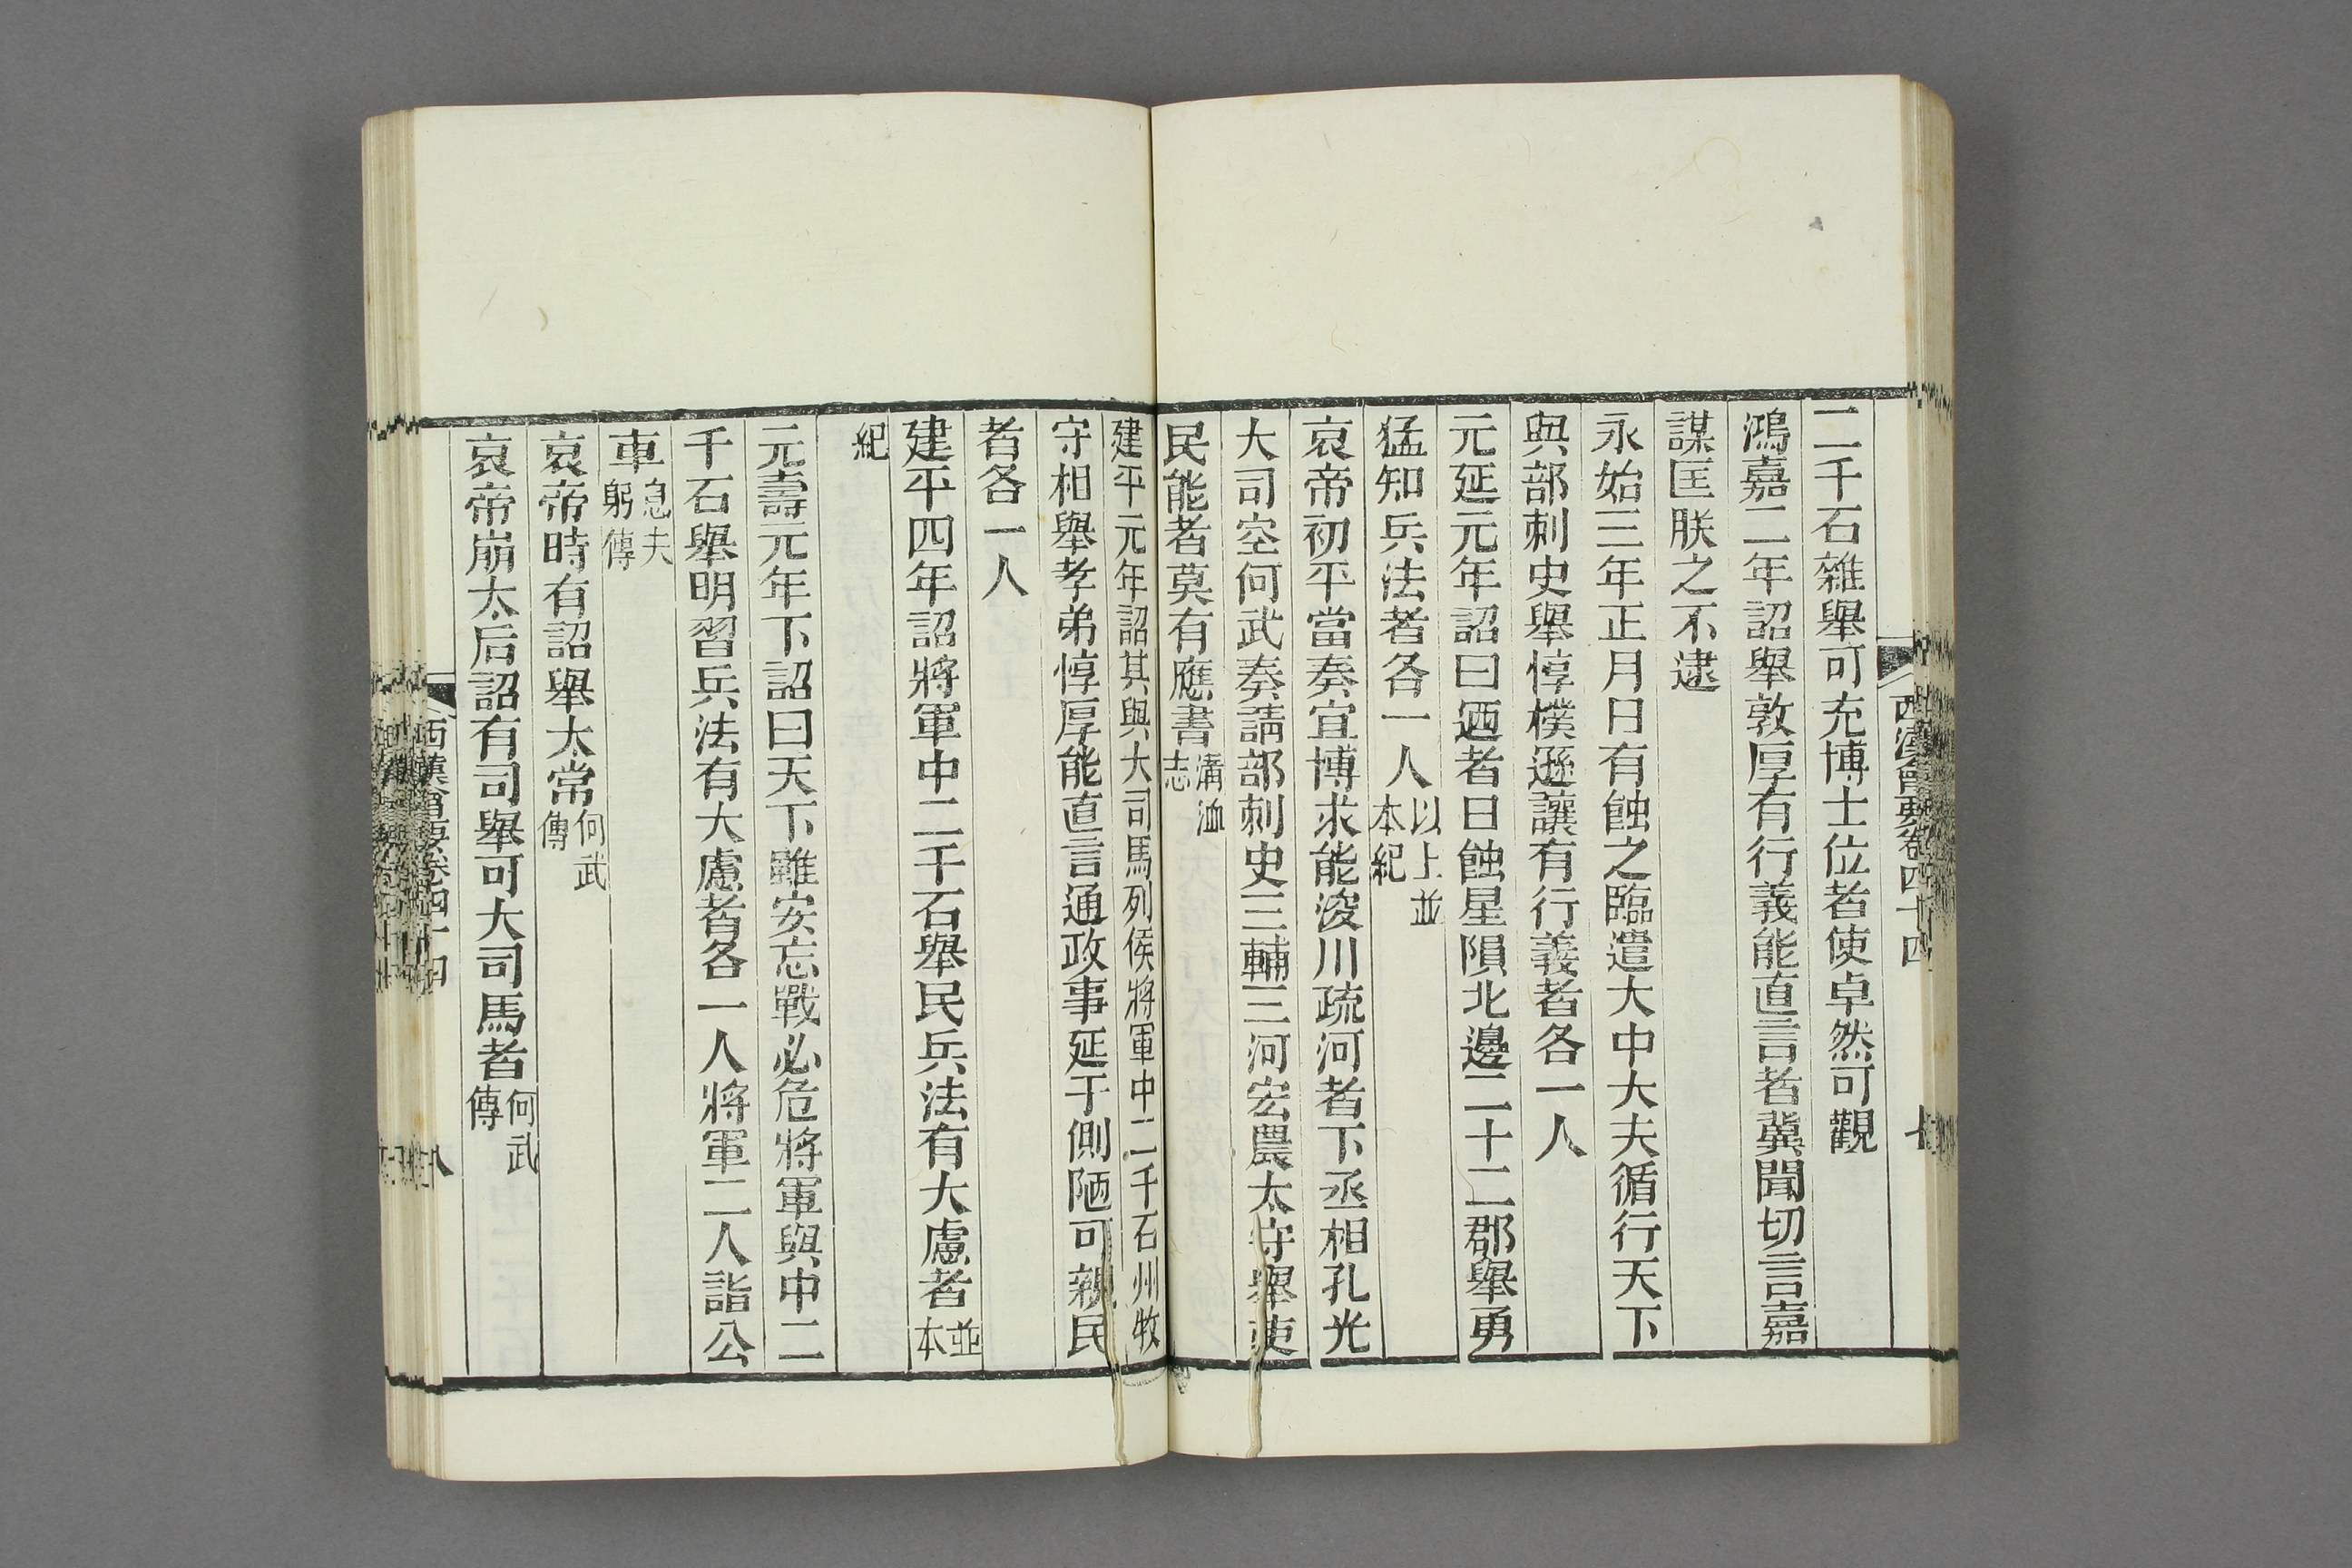 二千石雜舉可充博士位者使卓然可觀
鴻嘉二年詔舉敦厚有行義能直言者冀聞切言嘉
謀匡朕之不逮
永始三年正月日有蝕之臨遣大中大夫循行天下
與部刺史舉惇樸遜讓有行義者各一人
元延元年詔曰迺者日蝕星隕北邊二十二郡舉勇
猛知兵法者各一人以上並本紀
哀帝初平當奏宜博求能浚川疏河者下丞相孔光
大司空何武奏請部刺史三輔三河宏農太守舉吏
民能者莫有應書溝洫志
建平元年詔其與大司馬列侯將軍中二千石州牧
守相舉孝弟惇厚能直言通政事延于側陋可親民
者各一人
建平四年詔將軍中二千石舉民兵法有大慮者並本
紀
元壽元年下詔曰天下雖安忘戰必危將軍與中二
千石舉明習兵法有大慮者各一人將軍二人詣公
車息夫躬傳
哀帝時有詔舉太常何武傳
哀帝崩太后詔有司舉可大司馬者何武傳
西漢會要卷四十四
八